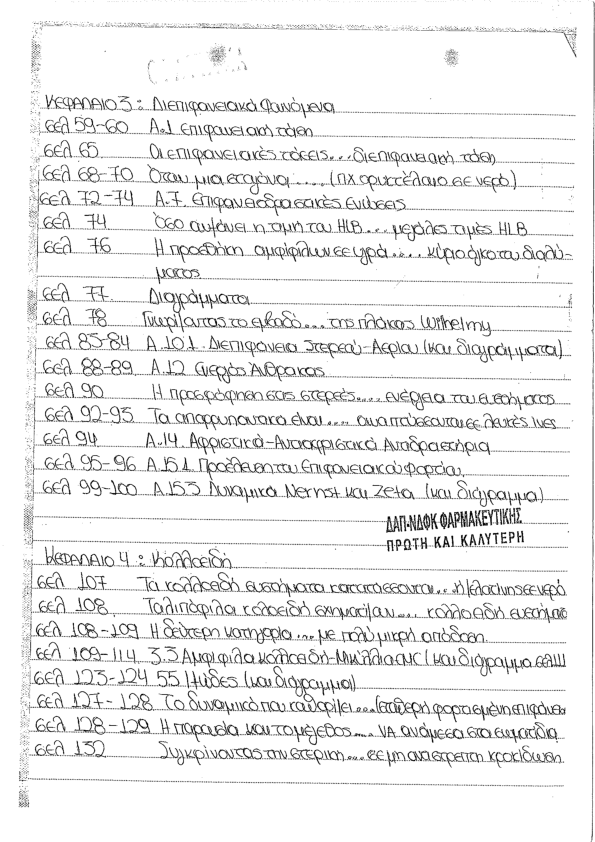 ΚΕΦΑΛΑΙΟ 3 : Διεπιφανειακά Φαινόμενα
σελ 59-60 Α.1 Επιφανειακή τάση
σελ 65 Οι επιφανειακές τάσεις... διεπιφανειακή τάση
σελ 68-70 Όταν μια σταγόνα.....(πχ ορυκτέλαιο σε νερό)
σελ 72-74 Α.7. Επιφανειοδραστικές Ενώσεις
σελ 74 Όσο αυξάνει η τιμή του HLB.... μεγάλες τιμές HLB
σελ 76 Η προσθήκη αμφίφιλων σε υγρά ..... κύριο όγκο του διαλύ-
ματος
σελ 77. Διαγράμματα
σελ 78 Γνωρίζοντας το εμβαδό.... της πλάκας Wilhelmy
σελ 83-84 Α.10.1. Διεπιφάνεια Στερεού-Αερίου (και διαγράμματα)
σελ 88-89 Α.12 Ενεργός Άνθρακας
σελ 90 Η προσρόφηση στις στερεές..... ενέργεια του συστήματος
σελ 92-93 Τα απορρυπαντικά είναι..... αναπτύσσονται σε λευκές ίνες
σελ 94 Α.14. Αφριστικά-Αντιαφριστικά Αντιδραστήρια
σελ 95-96 Α.15.1. Προέλευση του Επιφανειακού Φορτίου
σελ 99-100 Α.15.3 Δυναμικά Nernst και Zeta (και διάγραμμα)
ΔΑΠ-ΝΔΦΚ ΦΑΡΜΑΚΕΥΤΙΚΗΣ
ΠΡΩΤΗ ΚΑΙ ΚΑΛΥΤΕΡΗ
ΚΕΦΑΛΑΙΟ 4 : Κολλοειδή
σελ 107 Τα κολλοειδή συστήματα κατατάσσονται... ζελατίνης σε νερό
σελ 108 Τα λιπόφιλα κολλοειδή σχηματίζουν.... κολλοειδή συστήματα
σελ 108-109 Η δεύτερη κατηγορία ... με πολύ μικρή απόδοση
σελ 109-114 3.3 Αμφίφιλα κολλοειδή-Μικύλλια CMC (και διάγραμμα σελ 111
σελ 123-124 5.5 Ιξώδες (και διάγραμμα)
σελ 127-128 Το δυναμικό που καθορίζει....(σταθερή φορτισμένη επιφάνεια
σελ 128-129 Η παρουσία και το μέγεθος..... VA ανάμεσα στα σωματίδια
σελ 132 Συγκρίνοντας την στερική.... σε μη αναστρεπτή κροκίδωση